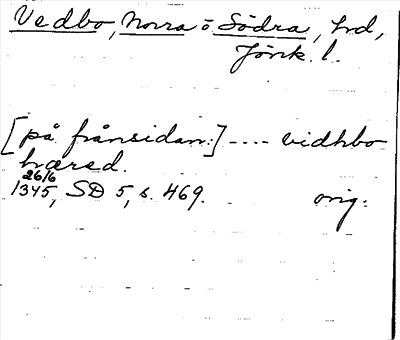 Vedbo, Norra o Södra, hd,
Jönk. l.
[på frånsidan:] .... vidhbo
hæred.
26/6
1345, SD 5, s. 469. orig: